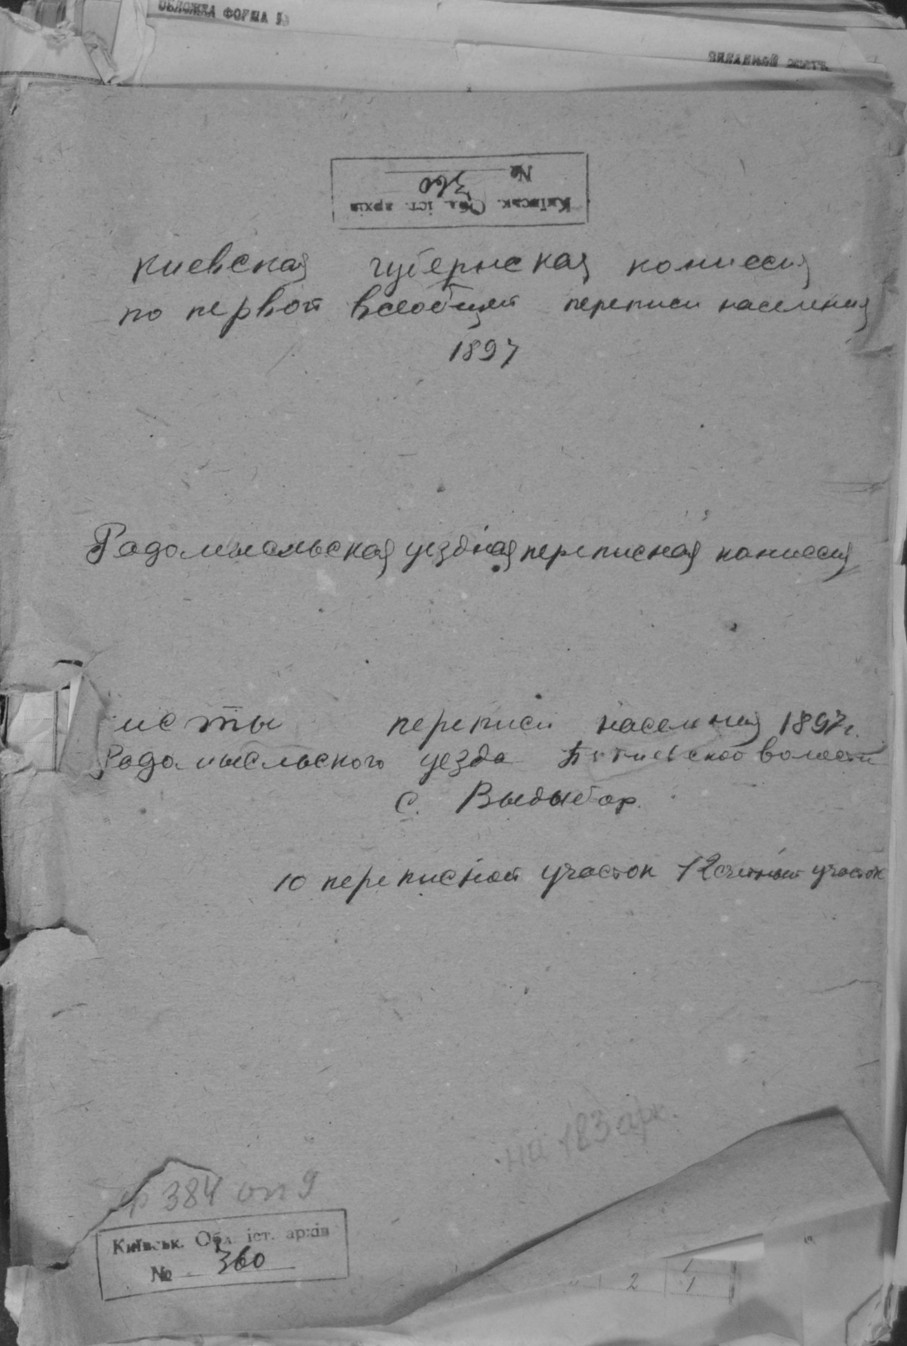 ОБЛОЖКА ФОРМА
№ 360
Київськ. Обл. іст. архів
Киевская губернская комиссия
по первой всеобщей переписи населения
1897
Радомысльская уездная переписная комиссия
исты переписи населения 1897 г.
Радомысльского уезда волости
с. Выдыбор.
10 переписной участок 12 счетный участок
на 183 арк.
ф 384 оп 9
Київськ. Обл. іст. архів
№ 360
2
1